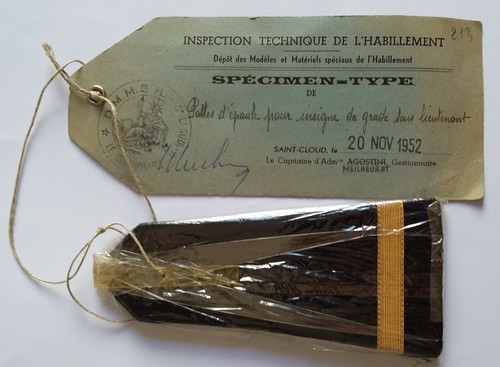 213
INSPECTION TECHNIQUE DE L'HABILLEMENT
Dépôt des Modèles et Matériels spéciaux de l'Habillement
SPÉCIMEN-TYPE
DE
Pattes d'épaule pour insigne de grade Sous lieutenant
SAINT-CLOUD, le 20 NOV 1952
Le Capitaine d'Adm on AGOSTINI, Gestionnaire
MEILHEURAT
D.M.M.S.H.